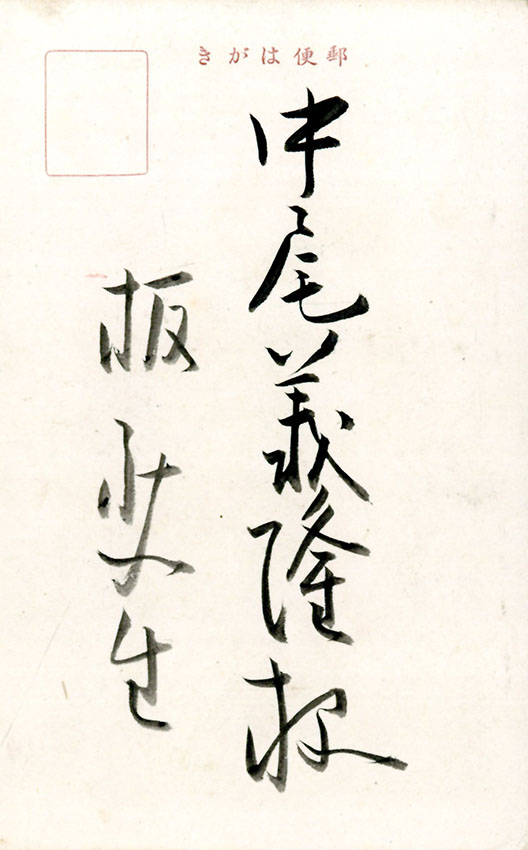 郵便はがき
中尾義隆様
板生